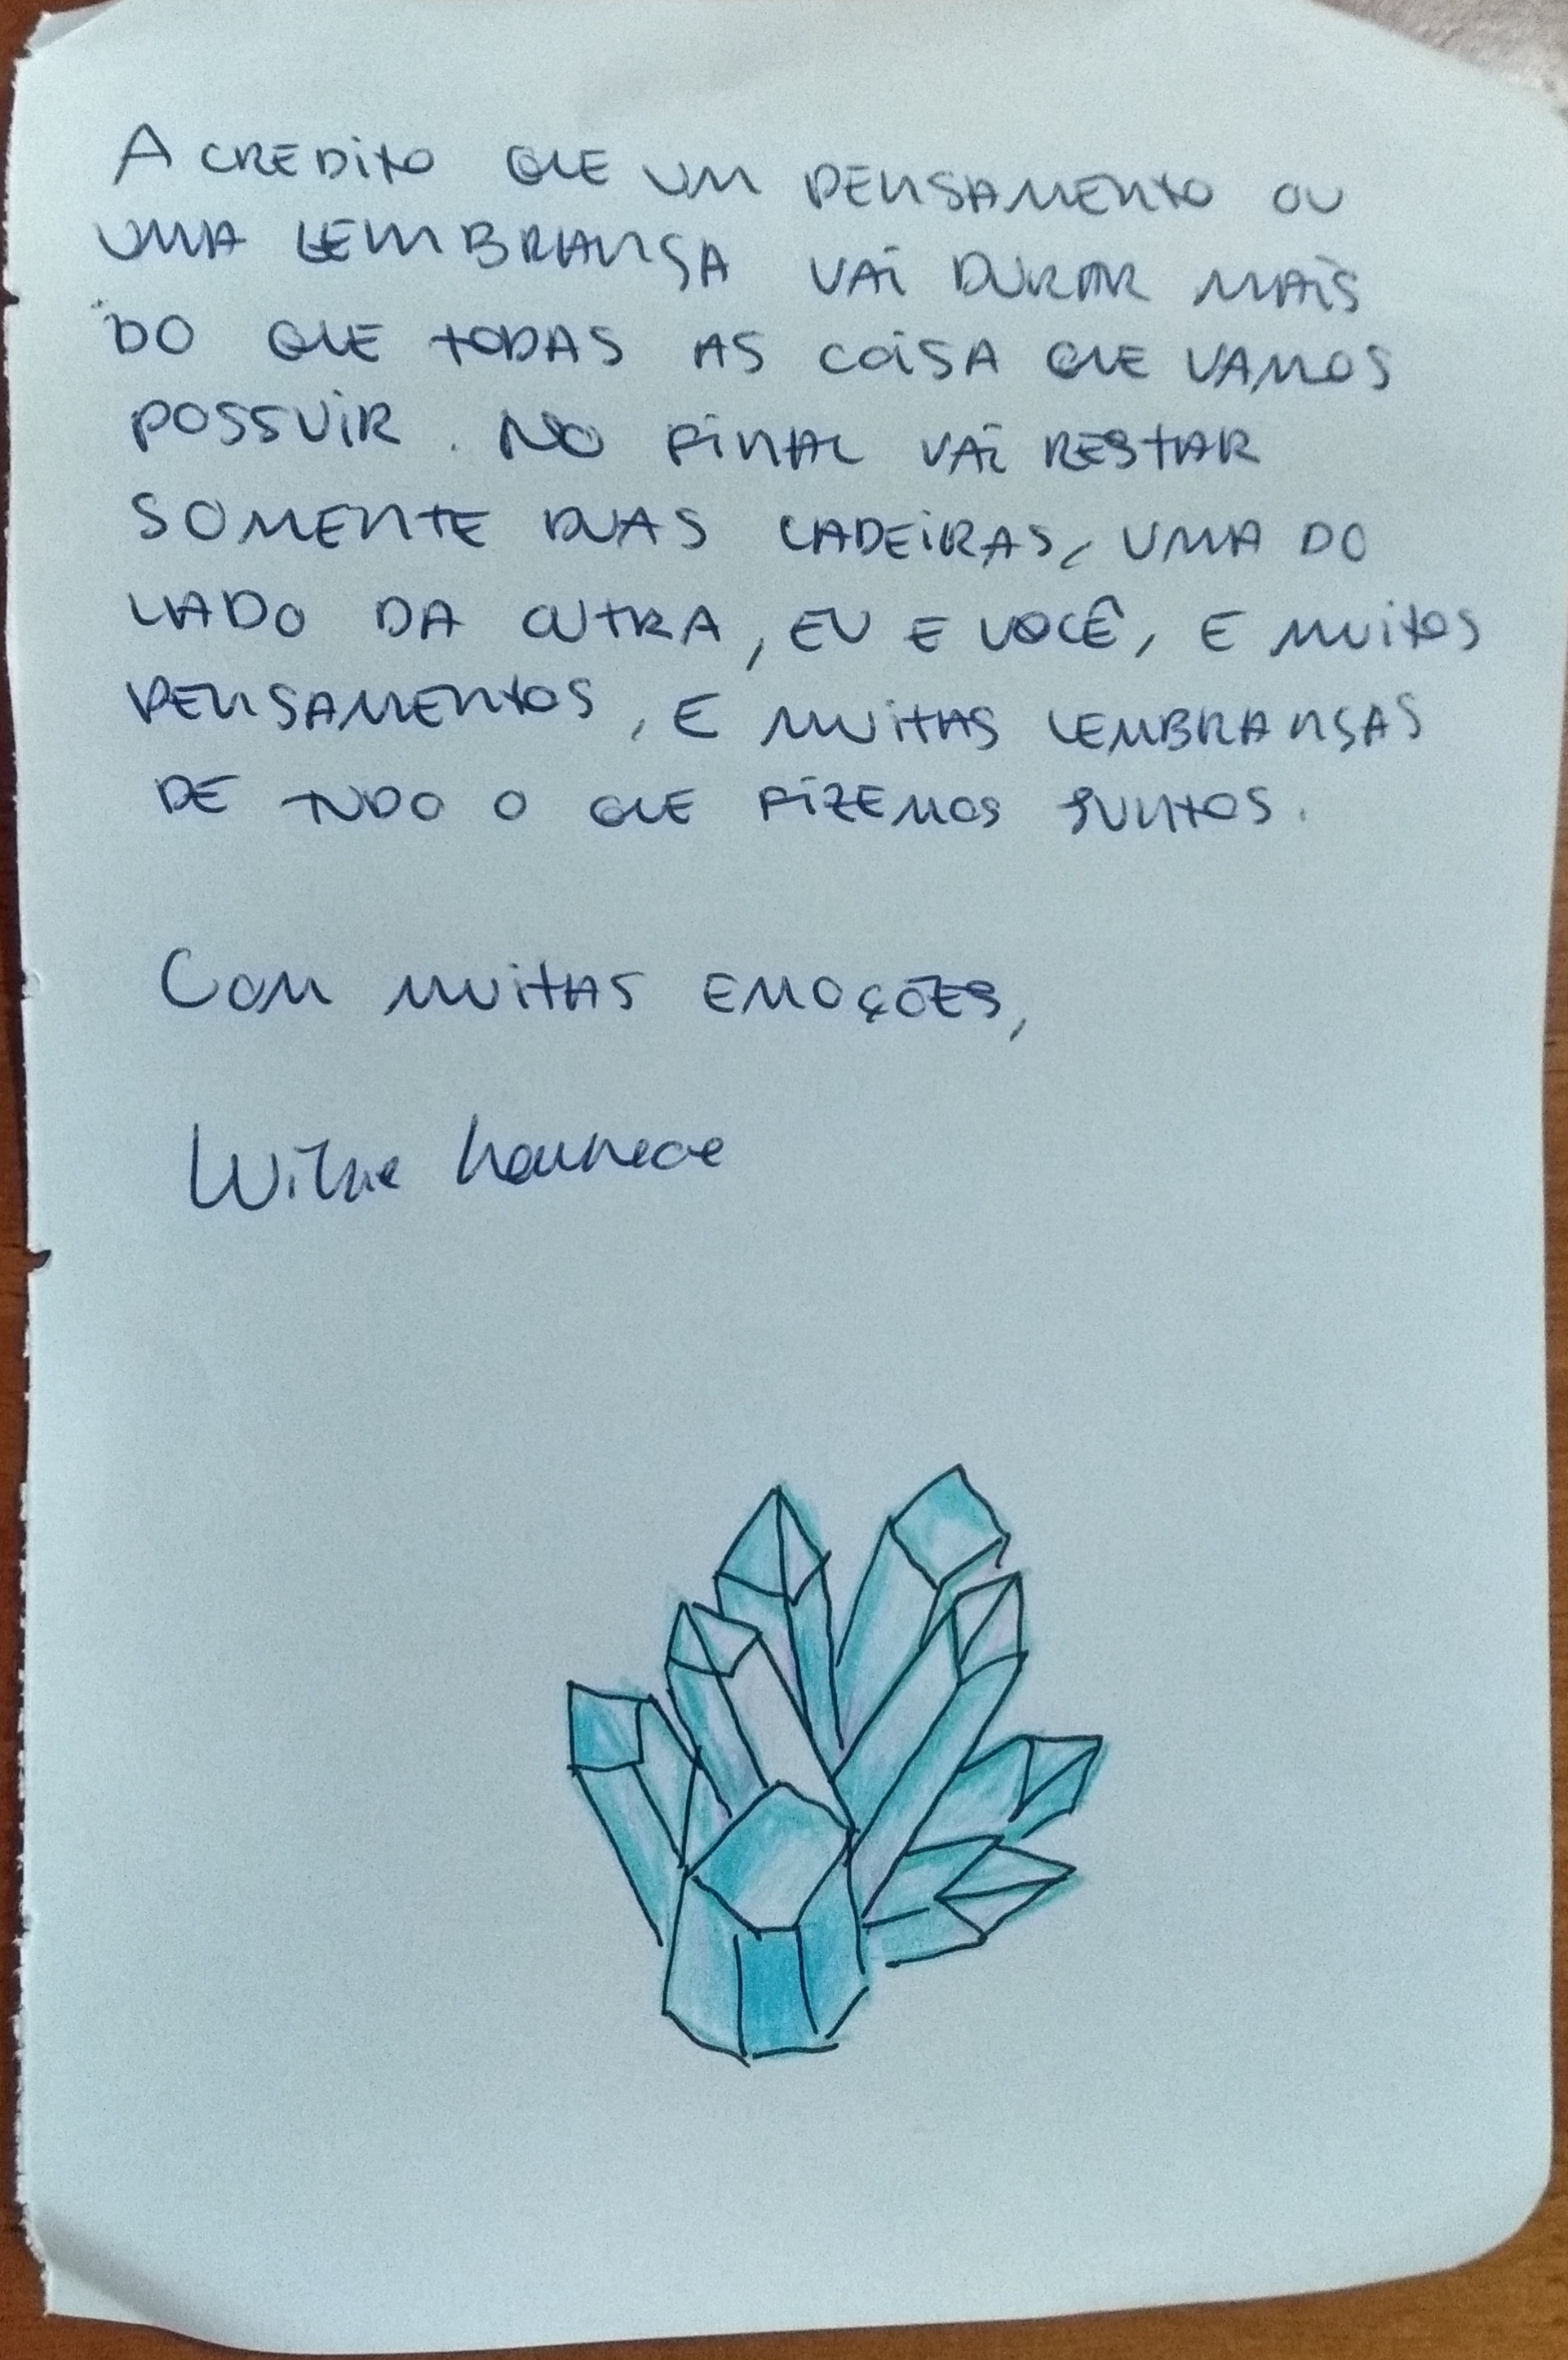 ACREDITO QUE UM PENSAMENTO OU
UMA LEMBRANSA VAI DURAR MAIS
DO QUE TODAS AS COISA QUE VAMOS
POSSUIR. NO FINAL VAI RESTAR
SOMENTE DUAS CADEIRAS, UMA DO
LADO DA OUTRA, EU E VOCÊ, E MUITOS
PENSAMENTOS, E MUITAS LEMBRANSAS
DE TUDO O QUE FIZEMOS JUNTOS.
COM MUITAS EMOÇÕES,